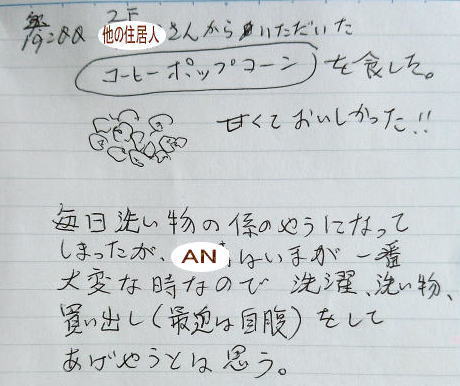 19:00 2F 他の住居人 さんからいただいた
コーヒーポップコーン を食した。
甘くておいしかった!!
毎日洗い物の係のやうになって
しまったが、AN はいまが一番
大変な時なので 洗濯、洗い物、
買い出し(最近は自腹)をして
あげやうとは思う。